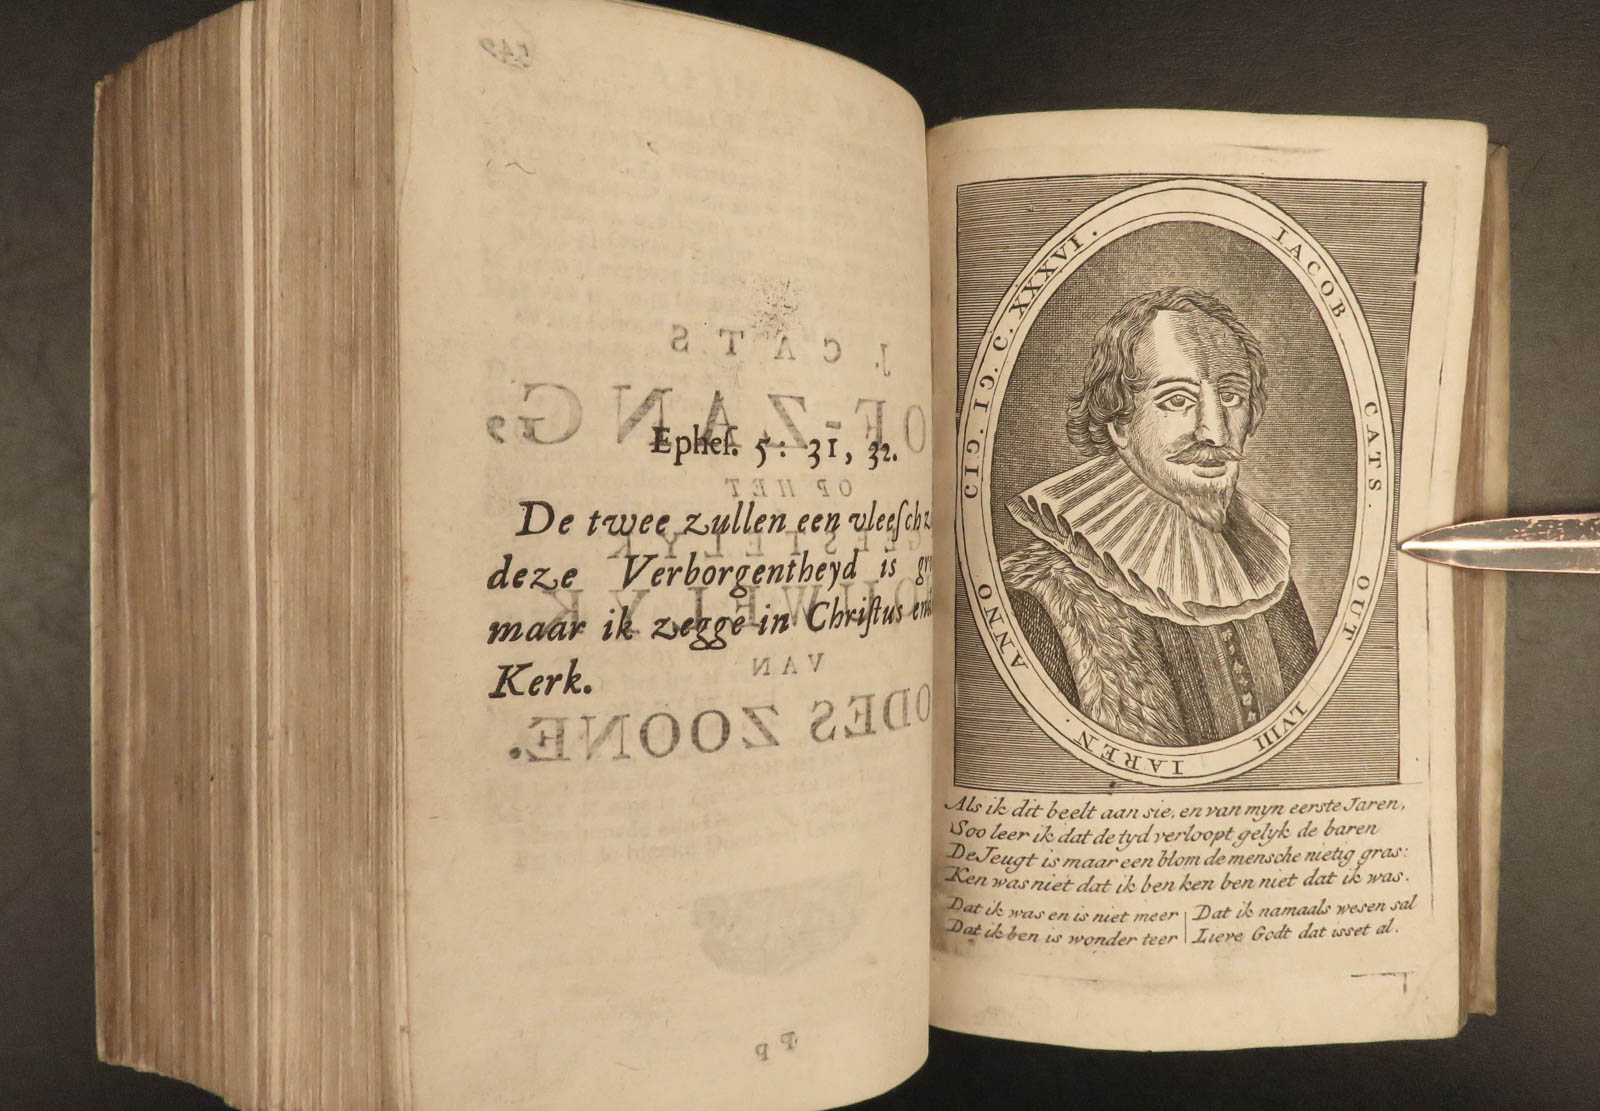 Ephes. 5: 31, 32.
De twee zullen een vleesch
deze Verborgentheyd is
maar ik zegge in Christus
Kerk.
J. CATS
OF-ZANG,
OP HET
VAN
ODES ZOONE.
PP
IACOB CATS. OUT LVIII IAREN. ANNO CIↃ.IↃ.C.XXXVI.
Als ik dit beelt aan sie, en van myn eerste Jaren,
Soo leer ik dat de tyd verloopt gelyk de baren
De Jeugt is maar een blom de mensche nietig gras:
Ken was niet dat ik ben ken ben niet dat ik was.
Dat ik was en is niet meer | Dat ik namaals wesen sal
Dat ik ben is wonder teer | Lieve Godt dat isset al.